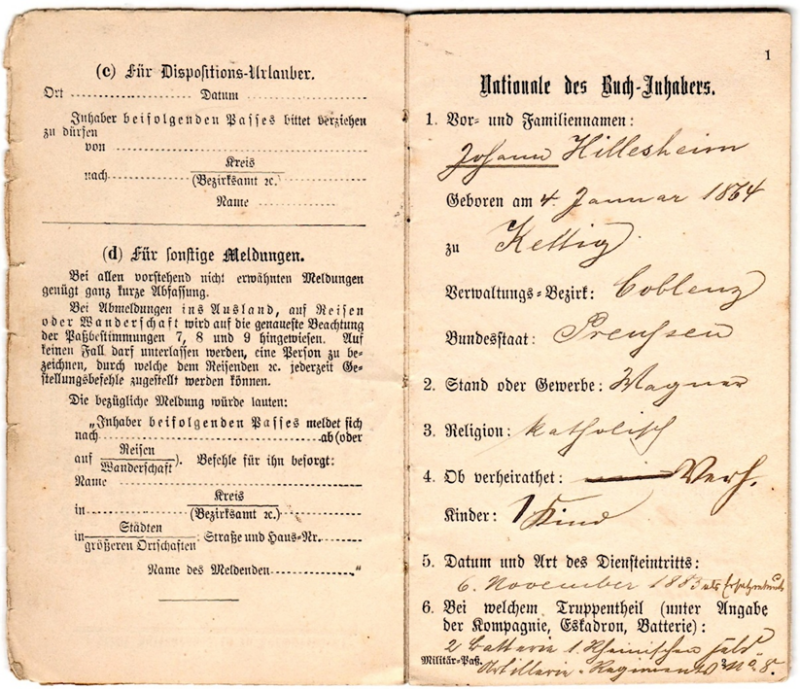 (c) Für Dispositions-Urlauber.
Ort Datum
Inhaber beifolgenden Passes bittet verziehen
zu dürfen
von
Kreis
nach
(Bezirksamt ꝛc.)
Name
(d) Für sonstige Meldungen.
Bei allen vorstehend nicht erwähnten Meldungen
genügt ganz kurze Abfassung.
Bei Abmeldungen ins Ausland, auf Reisen
oder Wanderschaft wird auf die genaueste Beachtung
der Paßbestimmungen 7, 8 und 9 hingewiesen. Auf
keinen Fall darf unterlassen werden, eine Person zu be-
zeichnen, durch welche dem Reisenden ꝛc. jederzeit Ge-
stellungsbefehle zugestellt werden können.
Die bezügliche Meldung würde lauten:
„Inhaber beifolgenden Passes meldet sich
nach ab (oder
Reisen
auf ). Befehle für ihn besorgt:
Wanderschaft
Name
Kreis
in
(Bezirksamt ꝛc.)
Städten
in Straße und Haus-Nr.
größeren Ortschaften
Name des Meldenden "
1
Nationale des Buch-Inhabers.
1. Vor- und Familiennamen:
Johann Hillesheim
Geboren am 4. Januar 1864
zu Kettig
Verwaltungs-Bezirk: Coblenz
Bundesstaat: Preußen
2. Stand oder Gewerbe: Wagner
3. Religion: katholisch
4. Ob verheirathet: Verh.
Kinder: 1 Kind
5. Datum und Art des Diensteintritts:
6. November 1883 als
6. Bei welchem Truppentheil (unter Angabe
der Kompagnie, Eskadron, Batterie):
2 Batterie 1. Rheinischen Feld-
Militär-Paß.
Artillerie-Regiments No 8.